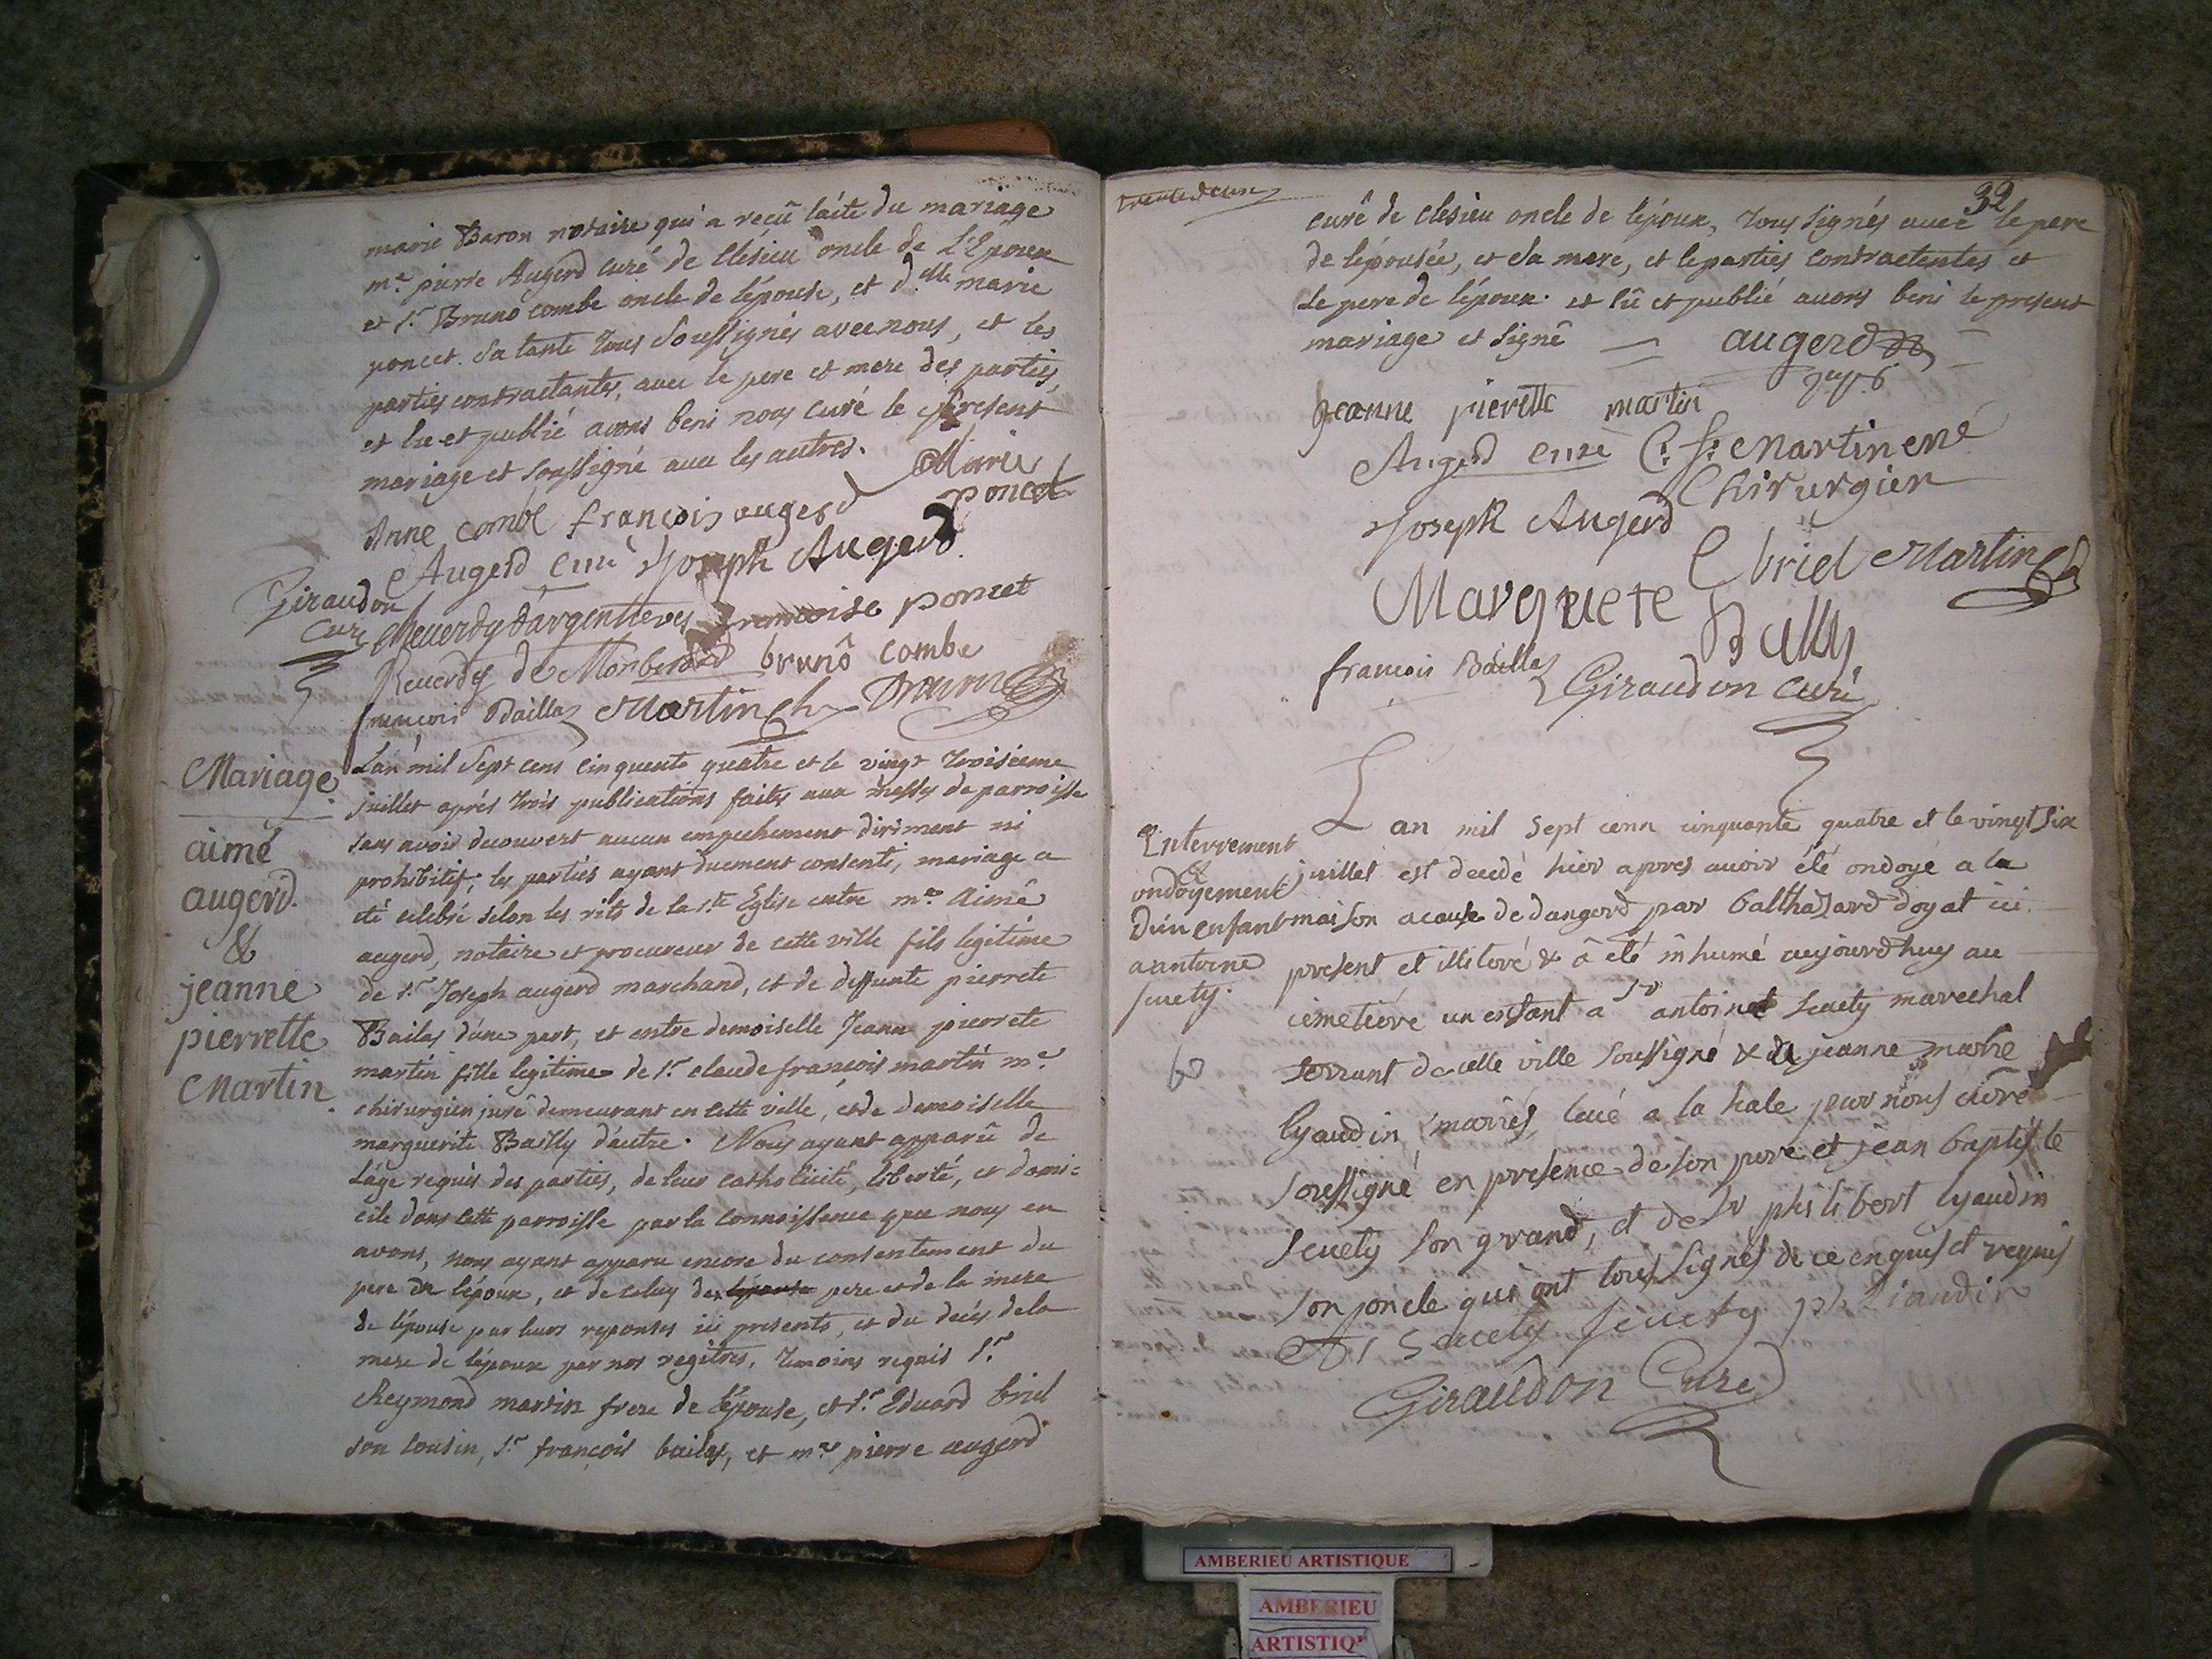 marie Baron notaire qui a reçû láite du mariage
m.e pierre Augerd curé de Clésieu oncle de L'Epoux
et s.r Bruno combe oncle de lépouse, et d.lle marie
poncet. Sa tante tous soussignés avec nous, et les
parties contractantes, avec le pere et mere des parties,
et lu et publié avons beni nous curé le present
mariage et soussigné avec les autres.
Marie
poncet
Anne combe françois augerd
Augerd curé Joseph Augerd
Giraudon
curé Reverdy d'argentieres francoise poncet
Reverdy de Monberard brunô combe
françois Baillas Martin ch
Mariage
aimé
augerd.
&
jeanne
pierrette
Martin.
L'an mil sept cens cinquente quatre et le vingt troisieme
juillet aprés trois publications faites aux messes de parroisse
sans avoir decouvert aucun empechement diriment ni
prohibitif; les parties ayant duement consenti, mariage a
eté celebré selon les rits de la s.te Eglise entre m.e Aimé
augerd, notaire et procureur de cette ville fils legitime
de s.r Joseph augerd marchand, et de deffunte pierrete
Bailas d'une part, et entre demoiselle Jeanne pierrete
martin fille legitime de s.r claude françois martin m.e
chirurgien juré demeurant en cette ville, et de demoiselle
marguerite Bailly d'autre. Nous ayant apparû de
l'áge requis des parties, de leur catholicité, liberté, et domi-
cile dans cette parroisse par la connoissance que nous en
avons, nous ayant apparu encore du consentement du
pere de l'époux, et de celuy des lépouse pere et de la mere
de l'épouse par leurs reponses ici presents, et du decés de la
mere de l'époux par nos regitres, temoins requis s.r
Reymond martin frere de l'épouse, et s.r Eduard briel
son cousin, s.r françois bailas, et m.e pierre augerd
trente deux
32
curé de clesieu oncle de lépoux, tous signés avec le pere
de lépousée, et sa mere, et le parties contractentes et
le pere de lépoux. et lû et publié avons beni le present
mariage et signé augerd
Jeanne pierette martin
Augerd curé C. f. Martin ené
Chirurgien
Joseph Augerd
briel Martin
Marguete
Bally
francois Baillas
Giraudon curé
Enterrement
&
ondoyement
d'un enfant
a antoine
seuety.
60
L an mil sept cenn cinquante quatre et le vingt six
juillet est decedé hier apres avoir été ondoyé a la
maison a cause de dangerd par balthazard doyat ici
present et illiteré & à été inhumé aujourdhuy au
cimetiere un enfant a sr antoine seuety marechal
ferrant de cette ville soussigné & de jeanne marie
lyaudin mariés, levé a la hale par nous curé
soussigné en presence de son pere et jean baptiste
seuety son grand, et de sr philibert lyaudin
son oncle qui ont tous signés de ce enquis et requis
A seuety seuety ph liaudin
Giraudon Curé
AMBERIEU ARTISTIQUE
AMBERIEU
ARTISTIQU